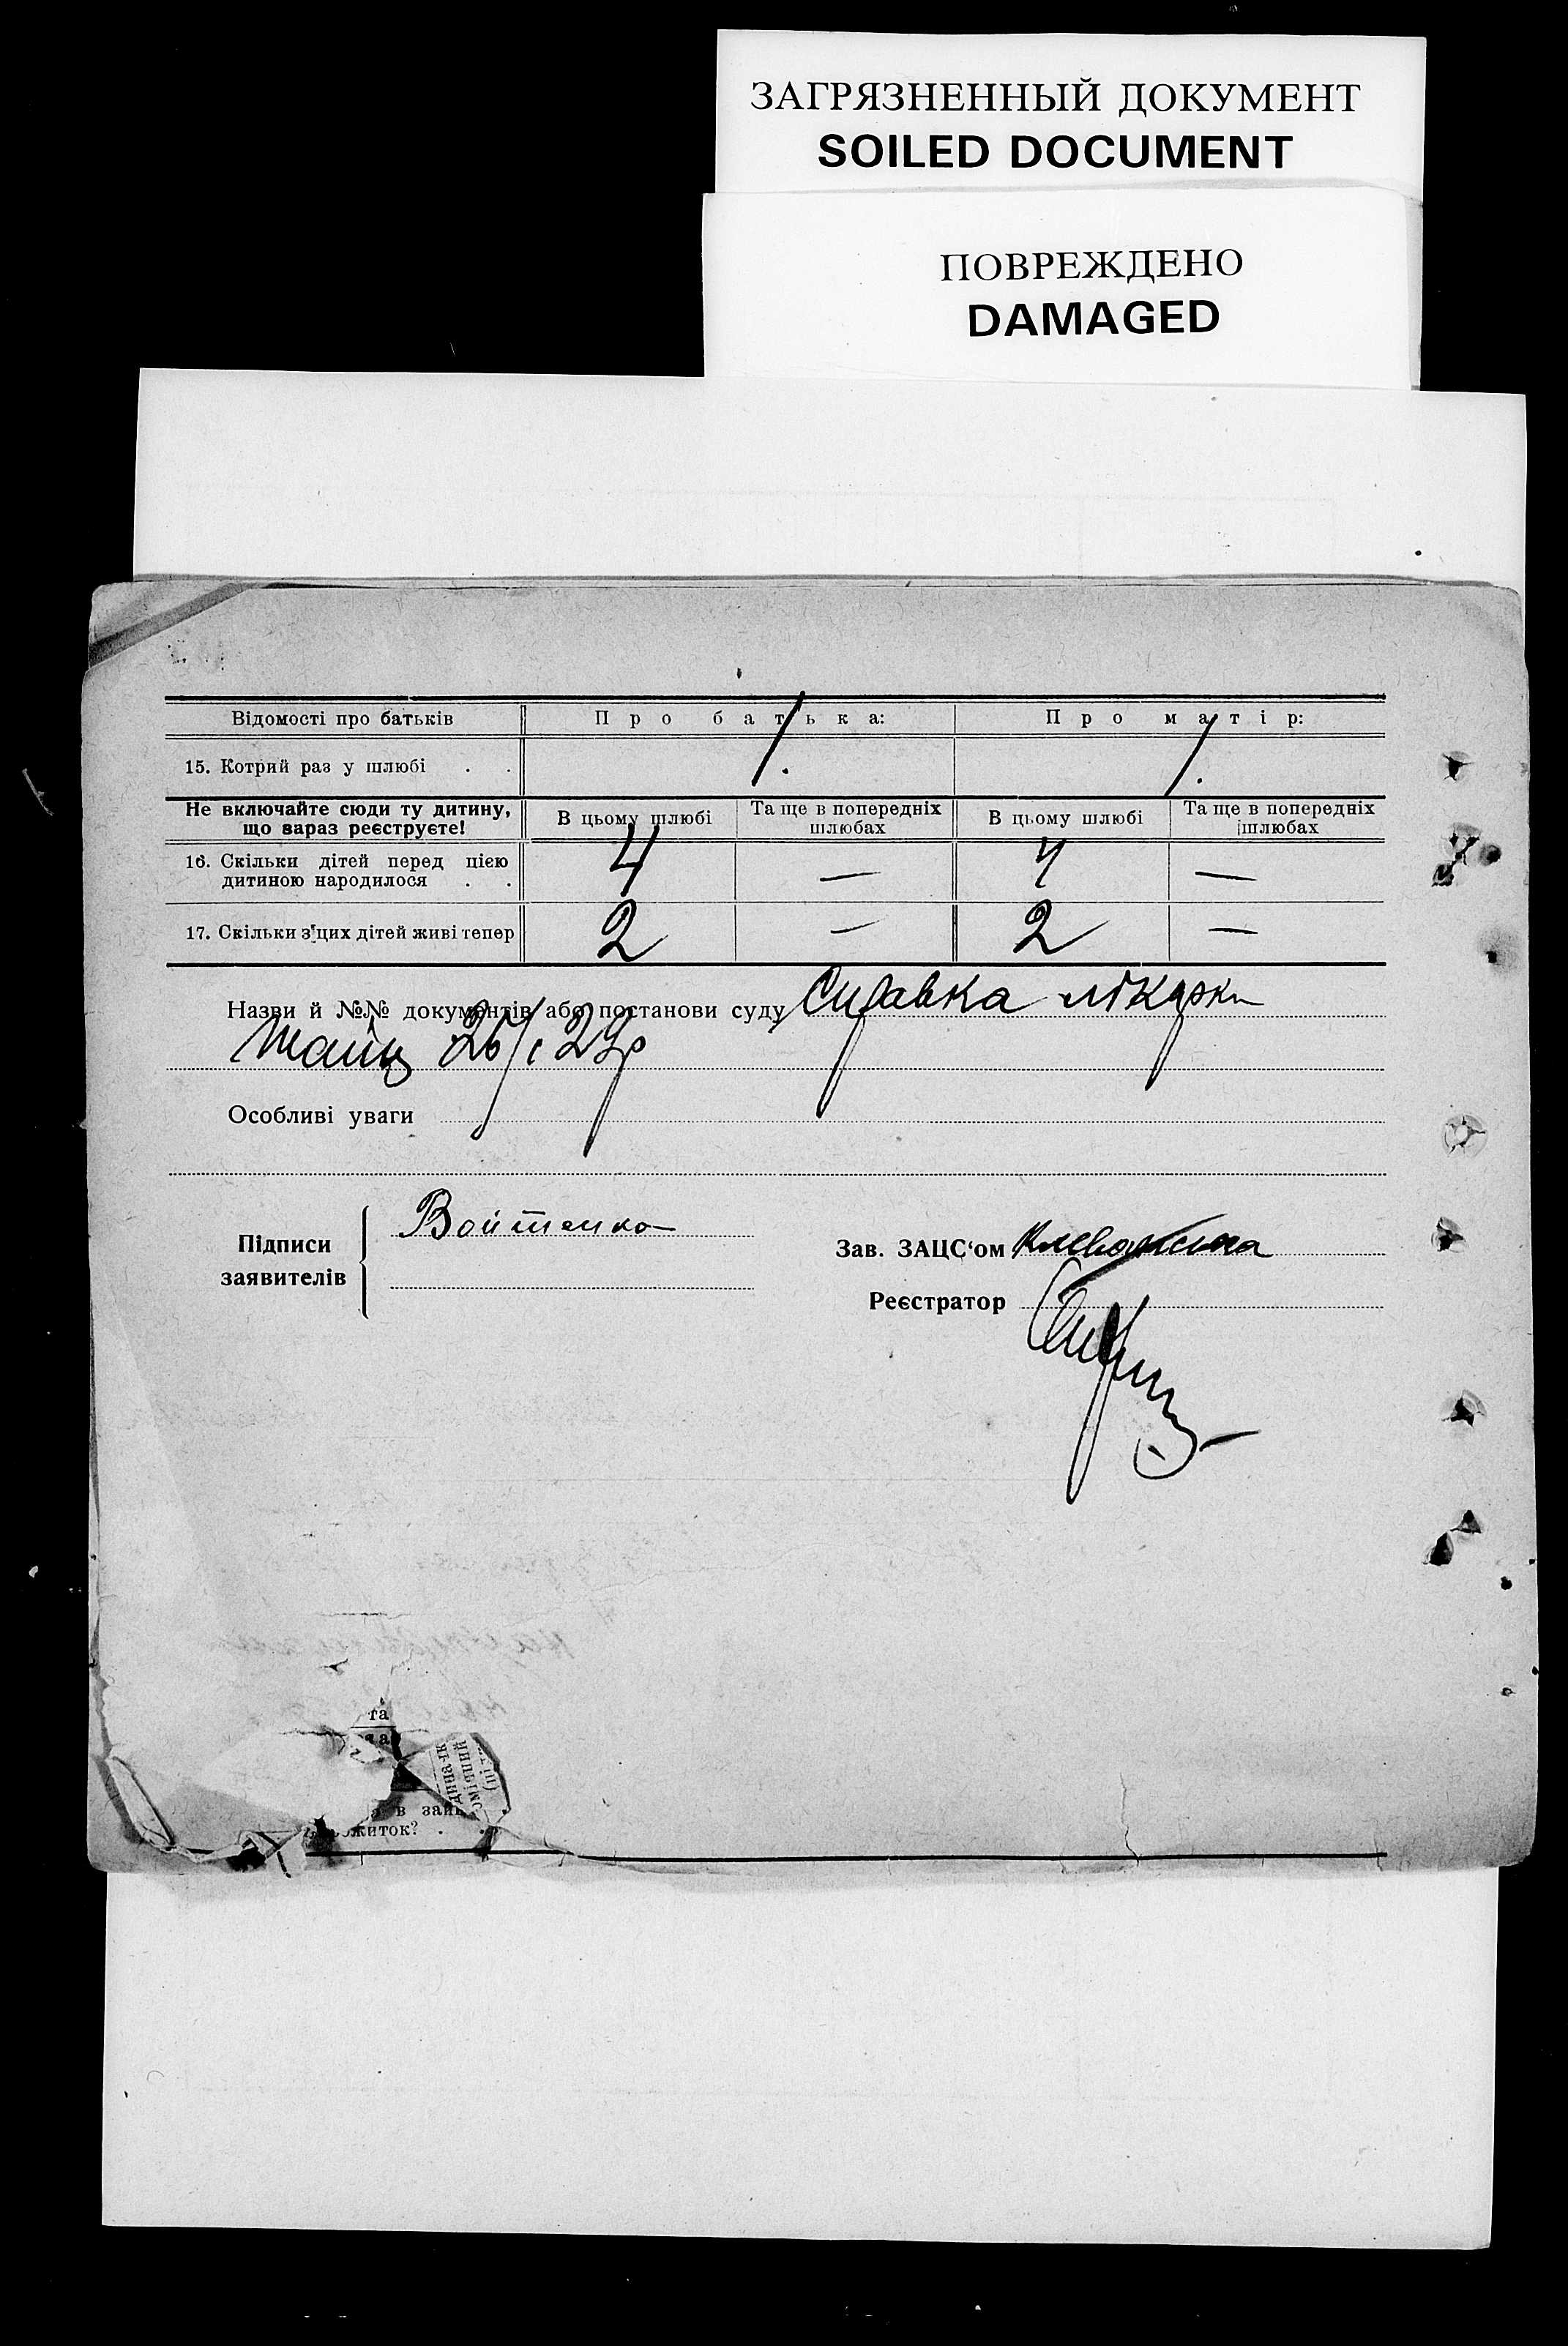 ЗАГРЯЗНЕННЫЙ ДОКУМЕНТ
SOILED DOCUMENT
ПОВРЕЖДЕНО
DAMAGED
Відомості про батьків Про батька: Про матір:
15. Котрий раз у шлюбі . . 1. 1.
Не включайте сюди ту дитину, що зараз реєструєте! В цьому шлюбі Та ще в попередніх шлюбах В цьому шлюбі Та ще в попередніх шлюбах
16. Скільки дітей перед цією
дитиною народилося . . 4 — 4 —
17. Скільки з цих дітей живі тепер 2 — 2 —
Назви й №№ документів або постанови суду Справка лікарки
Особливі уваги
Підписи
заявителів
Войтенко
Зав. ЗАЦС‘ом
Реєстратор
та
в зай
житок? .